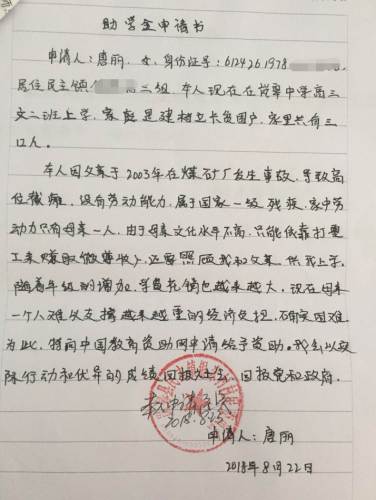 助学金申请书
申请人:唐丽,女,身份证号:612426.1978
居住民主镇 三组,本人现在在岚皋中学高三
文二班上学,家庭是建档立卡贫困户,家里共有三
口人。
本人因父亲于2003年在煤矿厂发生事故,导致高
位截瘫,没有劳动能力,属于国家一级残疾,家中劳
动力只有母亲一人,由于母亲文化水平不高,只能依靠打零
工来赚取微薄收入,还要照顾我和父亲,供我上学,
随着年级的增加,学费花销也越来越大,现在母亲
一个人难以支撑越来越重的经济负担,确实困难
为此,特向中国教育资助网申请给予资助。我会以实
际行动和优异的成绩回报社会,回报党和政府。
2018.8.25
申请人:唐丽
2018年8月22日